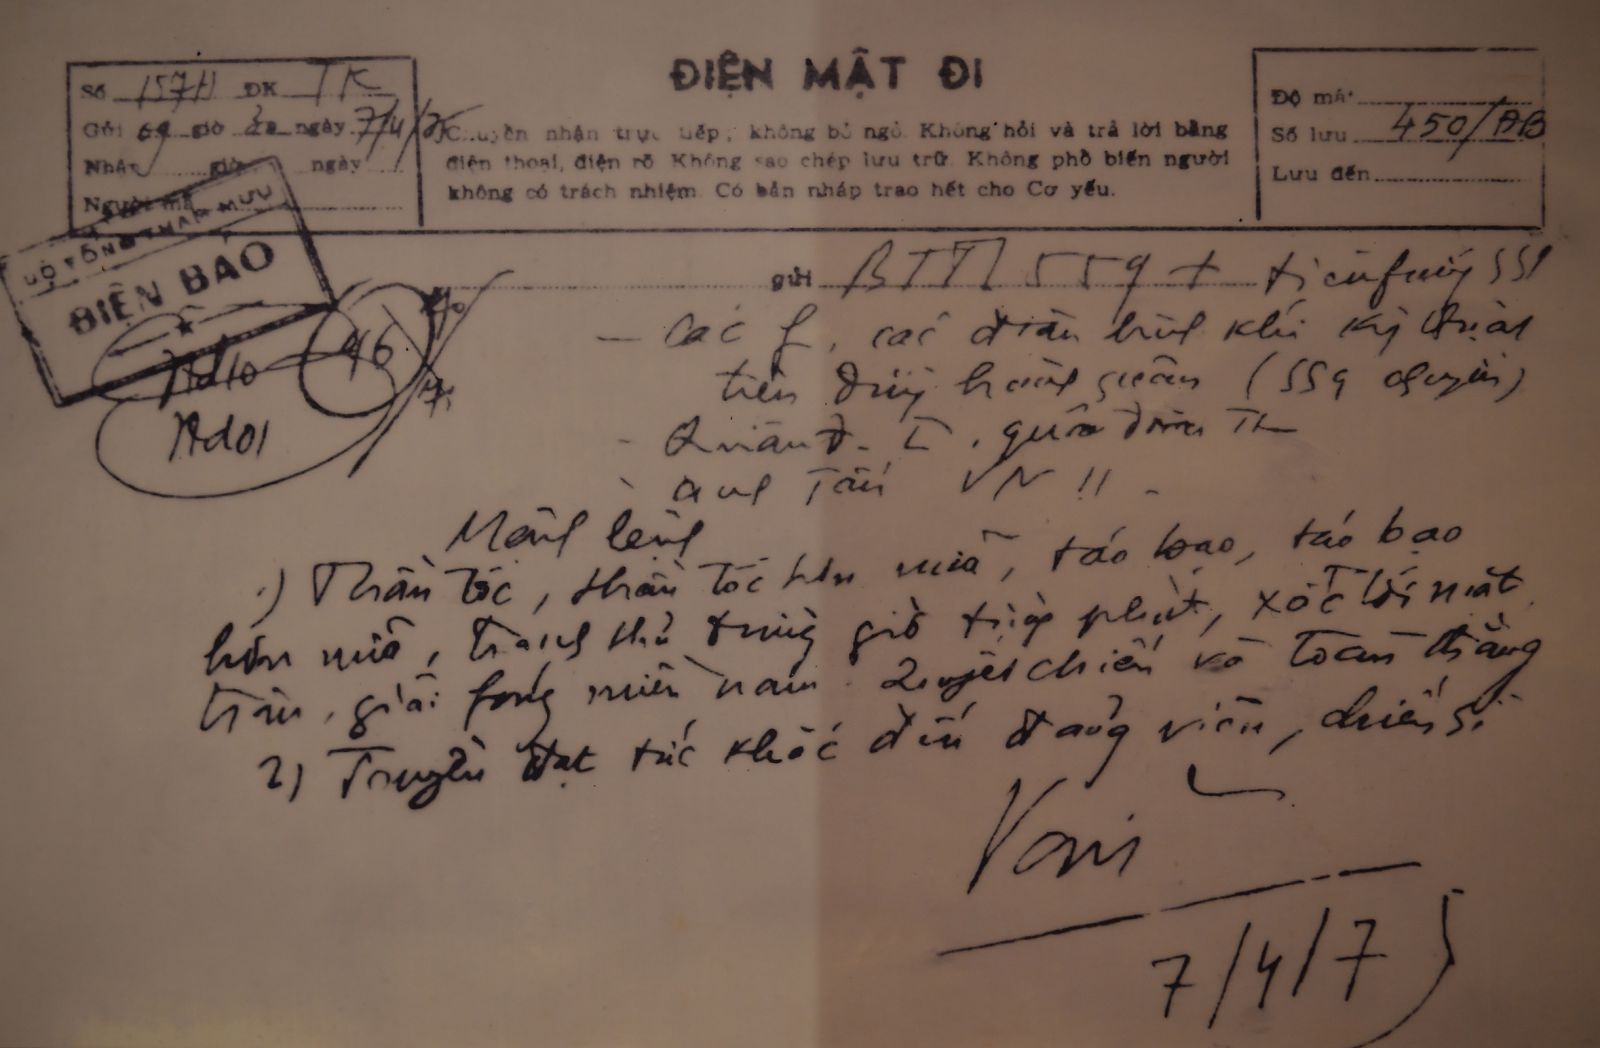 ĐIỆN MẬT ĐI
Số 157H ĐK TK
Gửi 09 giờ ngày 7/4/75
Nhận giờ ngày
Người mã
Chuyền nhận trực tiếp, không bỏ ngỏ. Không hỏi và trả lời bằng
điện thoại, điện rõ. Không sao chép lưu trữ. Không phổ biến người
không có trách nhiệm. Có bản nháp trao hết cho Cơ yếu.
Độ mật
Số lưu 450/ĐB
Lưu đến
BỘ TỔNG THAM MƯU
ĐIỆN BÁO
46
gửi BTTL 559 +
- các f, các đơn binh khí kỹ thuật
trên đường hành quân (559 chuyển)
- Quân Đ. I, quân đoàn
- anh Tấn VN !!
Mệnh lệnh
1) Thần tốc, thần tốc hơn nữa, táo bạo, táo bạo
hơn nữa, tranh thủ từng giờ từng phút, xốc tới mặt
trận, giải fóng miền nam. Quyết chiến và toàn thắng
2) Truyền đạt tức khắc đến đảng viên, chiến sĩ
Văn
7/4/75